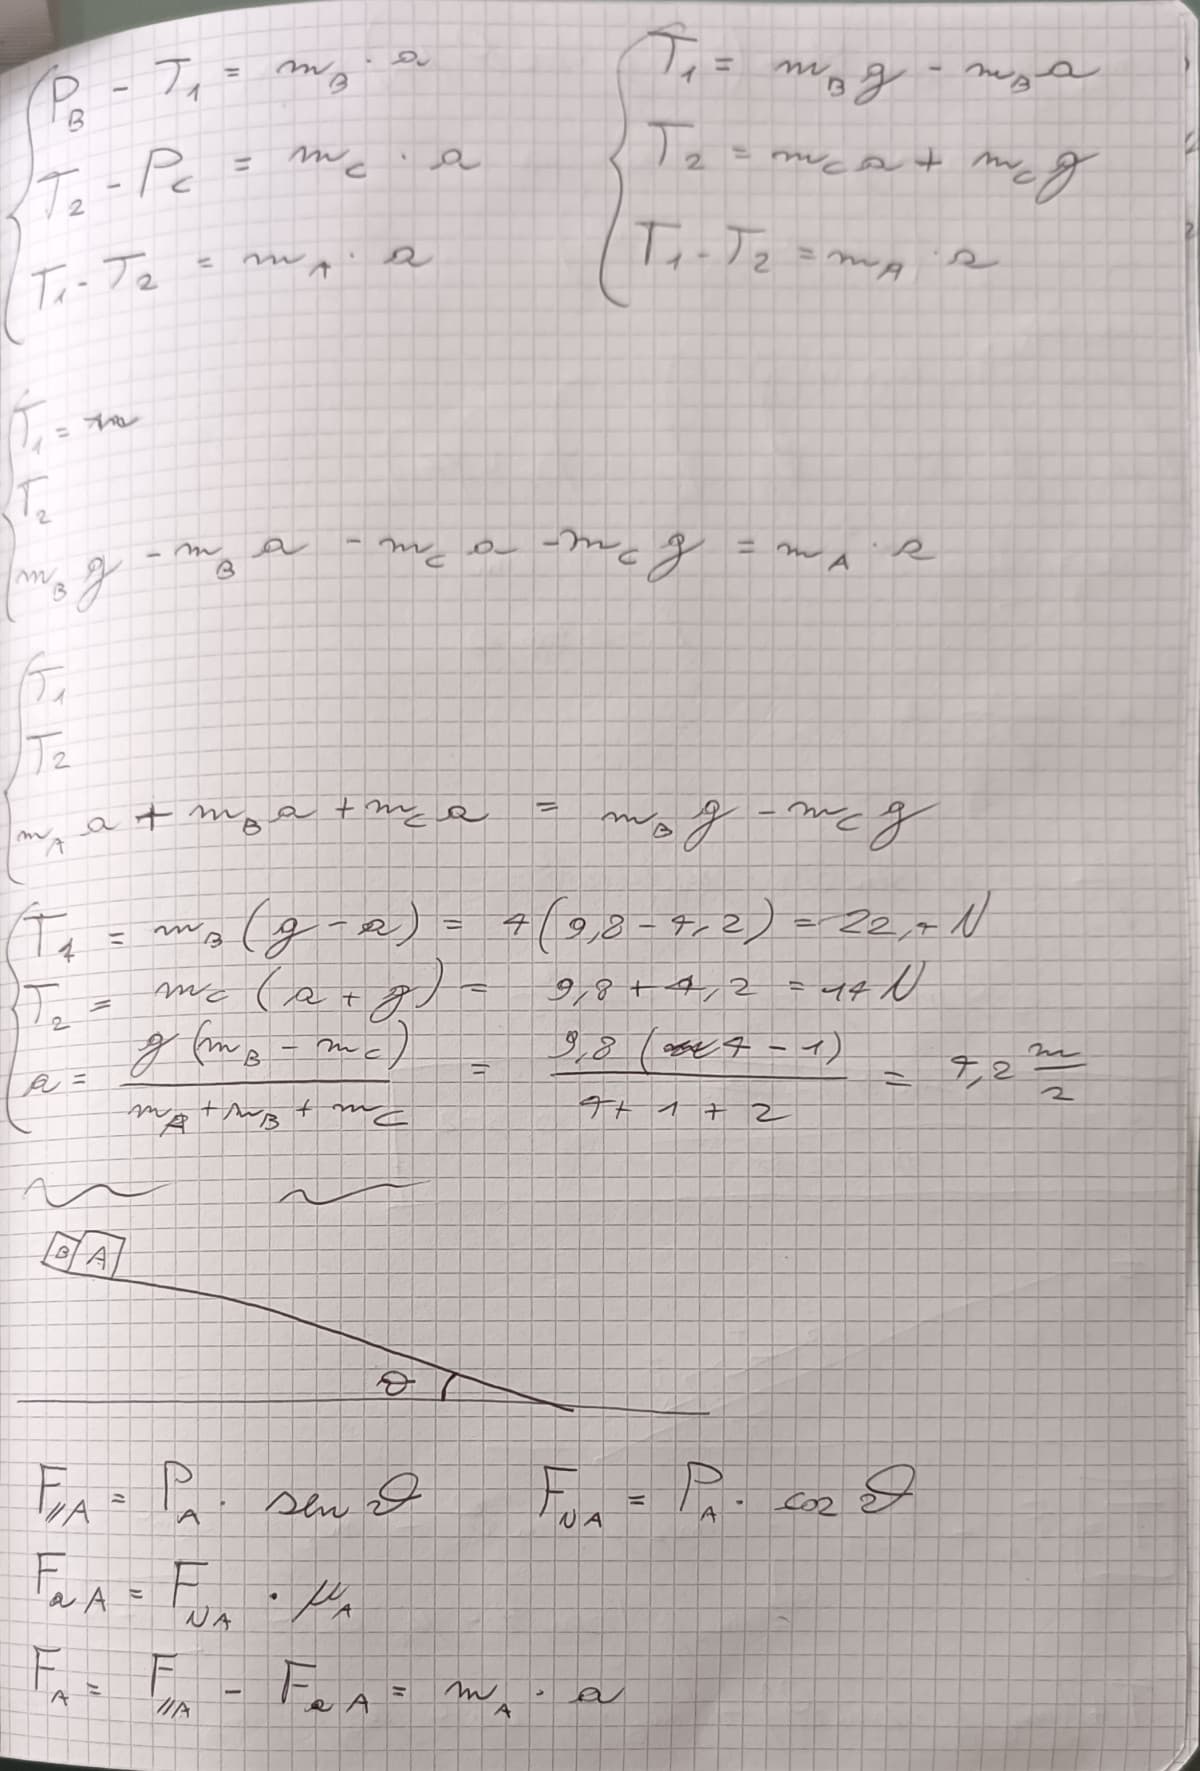 P_B - T_1 = m_B · a
T_2 - P_C = m_C · a
T_1 - T_2 = m_A · a
T_1 = m_B g - m_B a
T_2 = m_C a + m_C g
T_1 - T_2 = m_A · a
T_1 =
T_2
m_B g - m_B a - m_C a - m_C g = m_A · a
T_1
T_2
m_A a + m_B a + m_C a = m_B g - m_C g
T_1 = m_B (g - a) = 4 (9,8 - 4,2) = 22,4 N
T_2 = m_C (a + g) = 9,8 + 4,2 = 14 N
a = g (m_B - m_C) / m_A + m_B + m_C = 9,8 (4 - 1) / 4 + 1 + 2 = 4,2 m/2
B A
θ
F_//A = P_A · sen θ F_NA = P_A · cos θ
F_aA = F_NA · μ_A
F_A = F_//A - F_aA = m_A · a